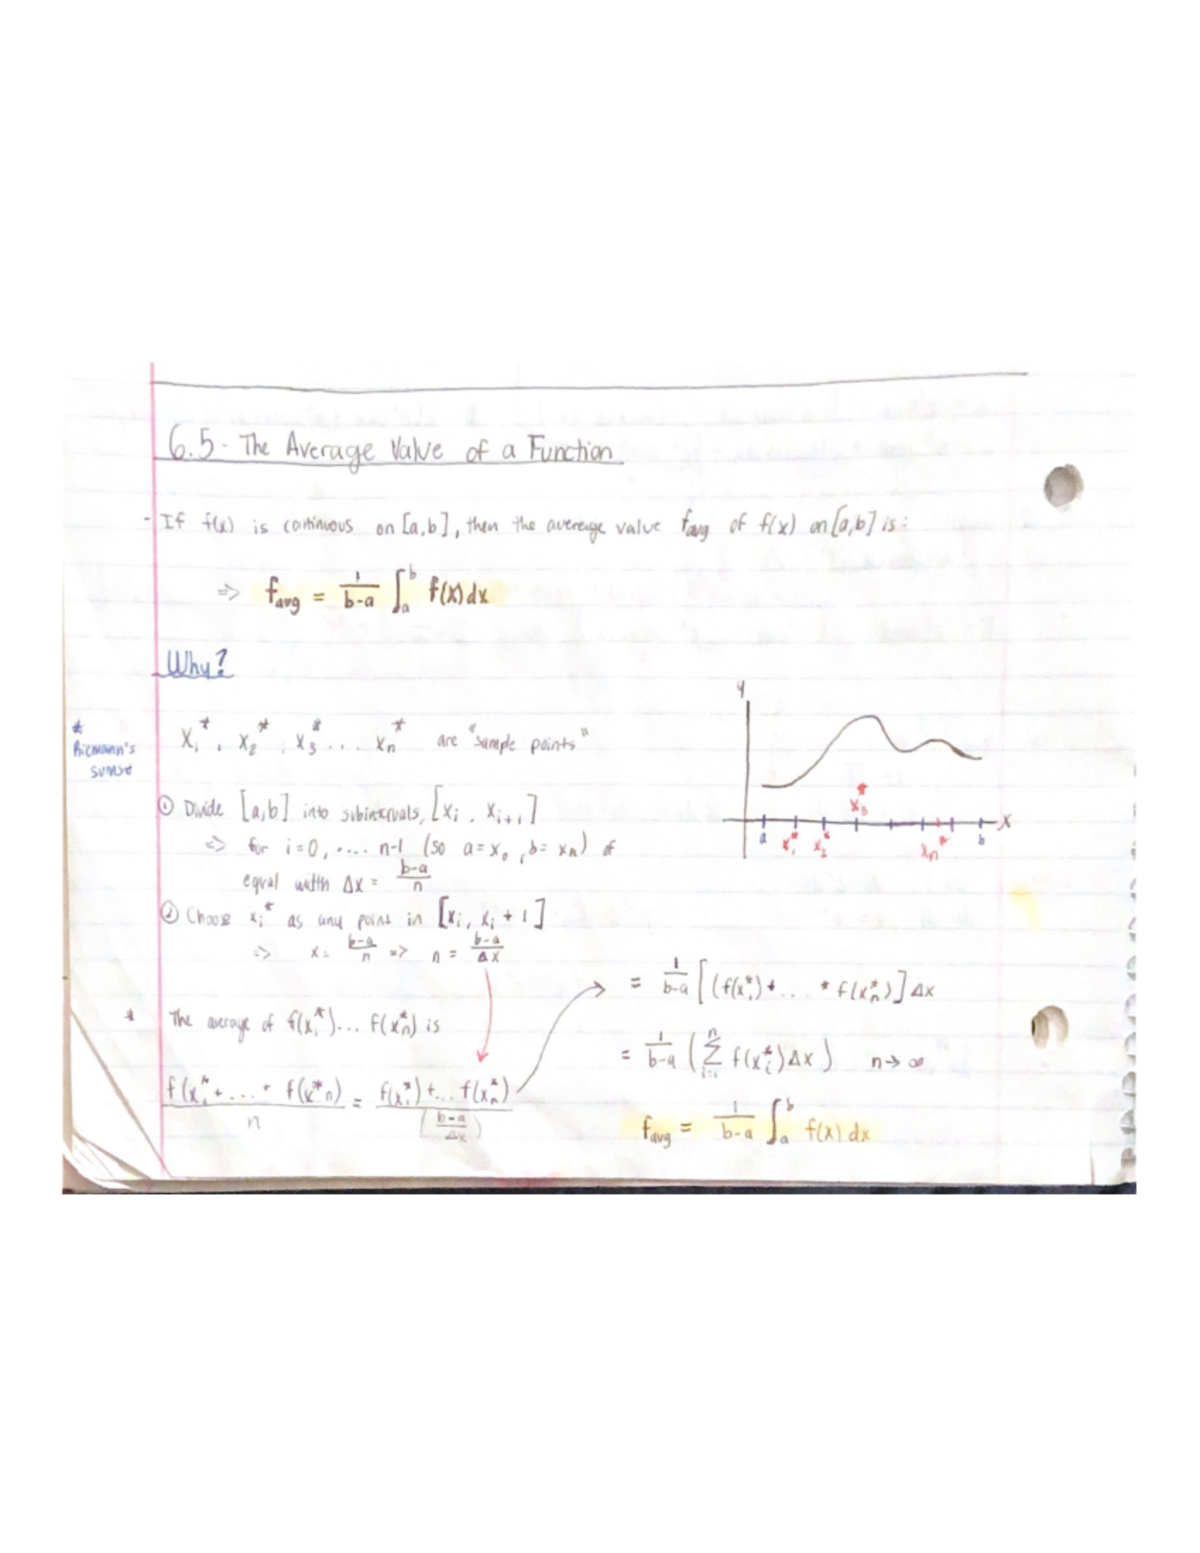 6.5 - The Average Value of a Function
- If f(x) is continuous on [a,b], then the average value f_avg of f(x) on [a,b] is:
=> f_avg = 1/(b-a) ∫_a^b f(x) dx
Why?
* Riemann's
sums*
x₁*, x₂*, x₃* ... xₙ* are "sample points"
① Divide [a,b] into subintervals, [xᵢ, xᵢ₊₁]
=> for i=0, .... n-1 (so a=x₀, b=xₙ) of
equal width Δx = (b-a)/n
② Choose xᵢ* as any point in [xᵢ, xᵢ + 1]
=> x = (b-a)/n => n = (b-a)/Δx
* The average of f(x₁*)... f(xₙ*) is
f(x₁* + ... + f(x*n) / n = f(x₁*) + ... f(xₙ*) / ((b-a)/Δx)
y
x
a x₁* x₂* x₃* xₙ* b
= 1/(b-a) [(f(x₁*) + ... + f(xₙ*)] Δx
= 1/(b-a) (Σ_{i=1}^n f(xᵢ*) Δx) n→∞
f_avg = 1/(b-a) ∫_a^b f(x) dx